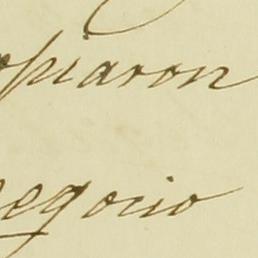 opiaron
negocio